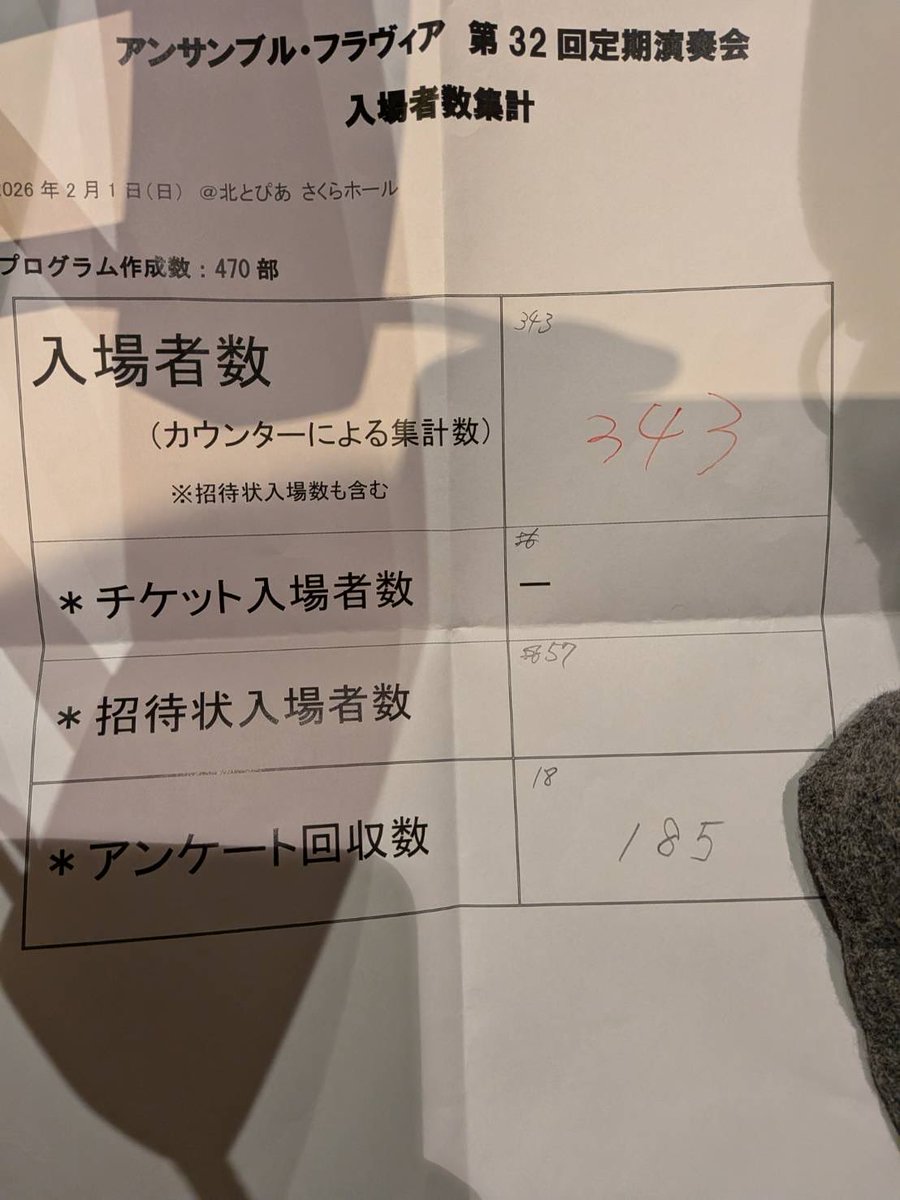 アンサンブル・フラヴィア 第32回定期演奏会
入場者数集計
026年2月1日(日) @北とぴあ さくらホール
プログラム作成数:470部
入場者数
343
343
(カウンターによる集計数)
※招待状入場数も含む
*チケット入場者数
ー
*招待状入場者数
57
*アンケート回収数
18
185